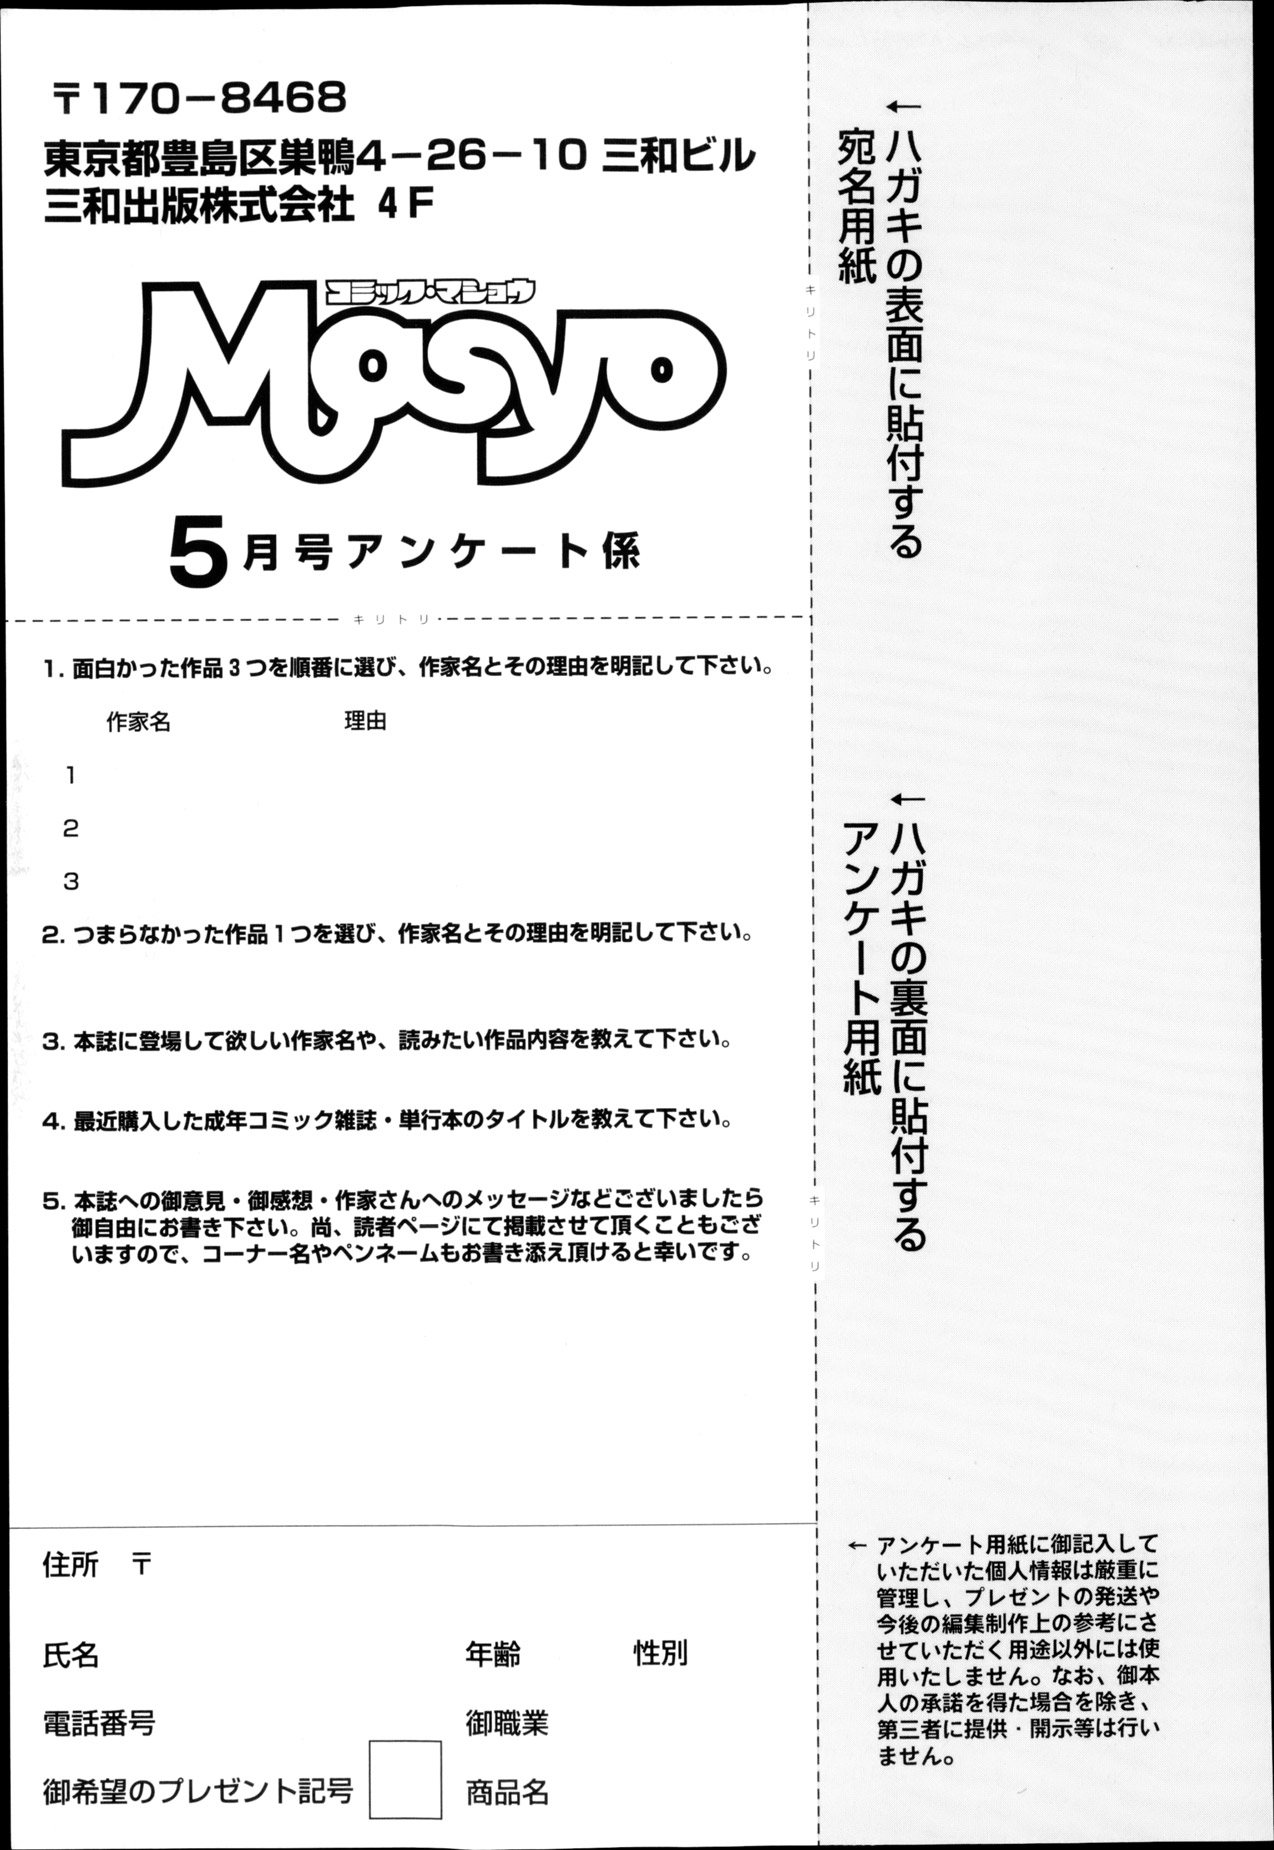 〒170−8468
東京都豊島区巣鴨4−26−10 三和ビル
三和出版株式会社 4F
コミック・マショウ
Masyo
5月号アンケート係
キリトリ
1. 面白かった作品3つを順番に選び、作家名とその理由を明記して下さい。
作家名 理由
1
2
3
2. つまらなかった作品1つを選び、作家名とその理由を明記して下さい。
3. 本誌に登場して欲しい作家名や、読みたい作品内容を教えて下さい。
4. 最近購入した成年コミック雑誌・単行本のタイトルを教えて下さい。
5. 本誌への御意見・御感想・作家さんへのメッセージなどございましたら
御自由にお書き下さい。尚、読者ページにて掲載させて頂くこともござ
いますので、コーナー名やペンネームもお書き添え頂けると幸いです。
住所 〒
氏名 年齢 性別
電話番号 御職業
御希望のプレゼント記号 商品名
キリトリ
キリトリ
←ハガキの表面に貼付する
宛名用紙
←ハガキの裏面に貼付する
アンケート用紙
← アンケート用紙に御記入して
いただいた個人情報は厳重に
管理し、プレゼントの発送や
今後の編集制作上の参考にさ
せていただく用途以外には使
用いたしません。なお、御本
人の承諾を得た場合を除き、
第三者に提供・開示等は行い
ません。